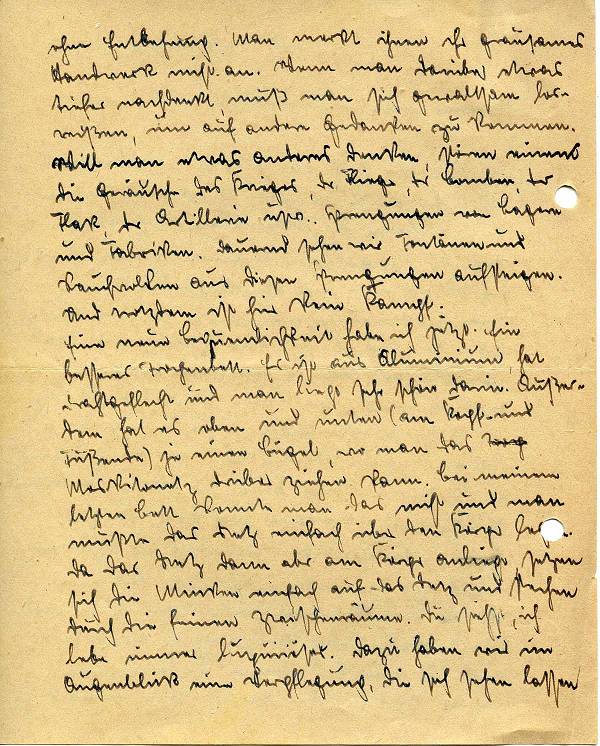 ohne Entbehrung. Man merkt ihnen ihr grausames
Handwerk nicht an. Wenn man darüber etwas
tiefer nachdenkt muß man sich gewaltsam los-
reißen, um auf andere Gedanken zu kommen.
Will man etwas anderes denken, stören einen
die Geräusche des Krieges, der Flieger, der Bomben, der
Flak, der Artillerie usw.. Sprengungen von Lagern
und Fabriken. Dauernd sehen wir Fontänen und
Rauchwolken aus diesen Sprengungen aufsteigen.
Und trotzdem ist hier kein Kampf.
Eine neue Bequemlichkeit habe ich jetzt. Ein
besseres Tropenbett. Es ist aus Aluminium hat
Drahtgeflecht und man liegt sehr schön darin. Außer-
dem hat es oben und unten (am Kopf- und
Fußende) je einen Bügel, wo man das
Moskitonetz drüber ziehen kann. Bei meinem
letzen Bett konnte man das nicht und man
mußte das Netz einfach über den Körper
Da das Netz dann aber am Körper anliegt, setzen
sich die Mücken einfach auf das Netz und stechen
durch die feinen Zwischenräume. Du siehst, ich
lebe immer luxuriöser. Dazu haben wir im
Augenblick eine Verpflegung, die sich sehen lassen